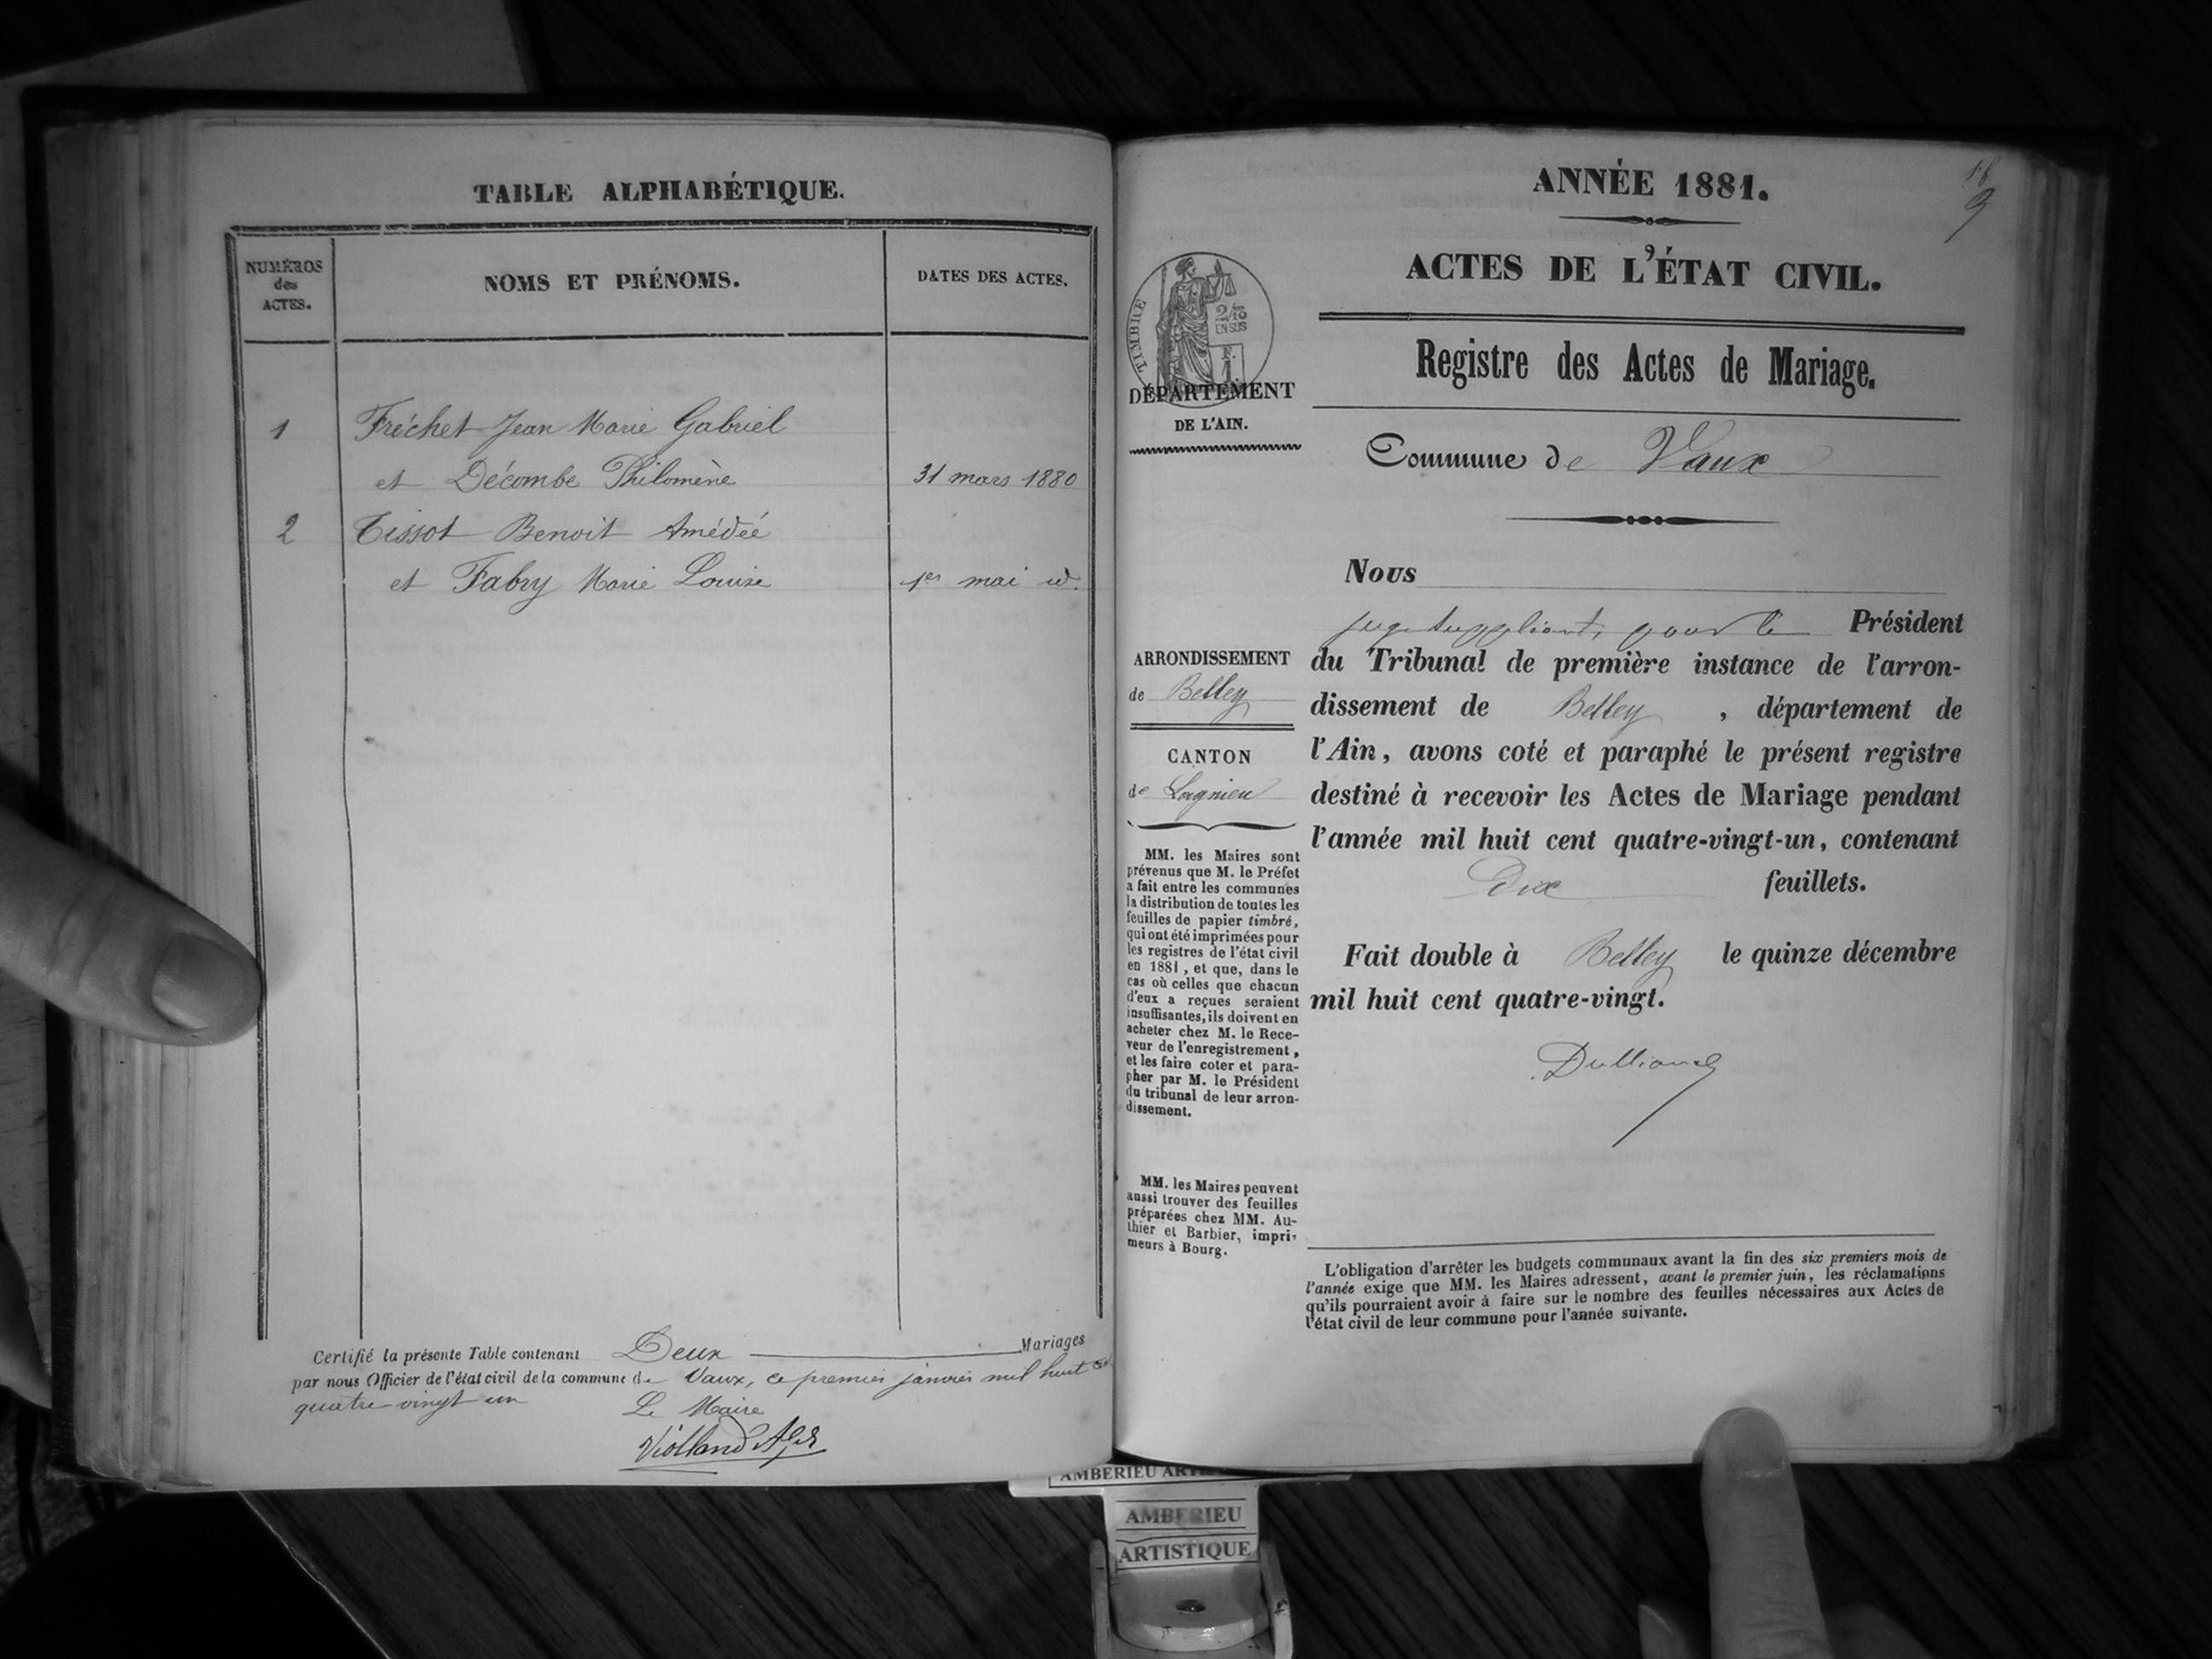 TABLE ALPHABÉTIQUE.
NUMÉROS
des
ACTES.
NOMS ET PRÉNOMS.
DATES DES ACTES.
1 Fréchet Jean Marie Gabriel
et Décombe Philomène 31 mars 1880
2 Tissot Benoit Amédéé
et Fabry Marie Louise 1er mai id.
Certifié la présente Table contenant Deux Mariages
par nous Officier de l'état civil de la commune de Vaux, ce premier janvier mil huit
quatre-vingt un
Le Maire
ANNÉE 1881.
9
ACTES DE L'ÉTAT CIVIL.
Registre des Actes de Mariage.
TIMBRE
2/10
EN SUS
DÉPARTEMENT
DE L'AIN.
Commune de Vaux
Nous
juge suppléant, pour le Président
du Tribunal de première instance de l'arron-
dissement de Belley, département de
l'Ain, avons coté et paraphé le présent registre
destiné à recevoir les Actes de Mariage pendant
l'année mil huit cent quatre-vingt-un, contenant
Dix feuillets.
Fait double à Belley le quinze décembre
mil huit cent quatre-vingt.
ARRONDISSEMENT
de Belley
CANTON
de Lagnieu
MM. les Maires sont
prévenus que M. le Préfet
a fait entre les communes
la distribution de toutes les
feuilles de papier timbré,
qui ont été imprimées pour
les registres de l'état civil
en 1881, et que, dans le
cas où celles que chacun
d'eux a reçues seraient
insuffisantes, ils doivent en
acheter chez M. le Rece-
veur de l'enregistrement,
et les faire coter et para-
pher par M. le Président
du tribunal de leur arron-
dissement.
MM. les Maires peuvent
aussi trouver des feuilles
préparées chez MM. Au-
thier et Barbier, impri-
meurs à Bourg.
L'obligation d'arrêter les budgets communaux avant la fin des six premiers mois de
l'année exige que MM. les Maires adressent, avant le premier juin, les réclamations
qu'ils pourraient avoir à faire sur le nombre des feuilles nécessaires aux Actes de
l'état civil de leur commune pour l'année suivante.
AMBERIEU
AMBERIEU
ARTISTIQUE